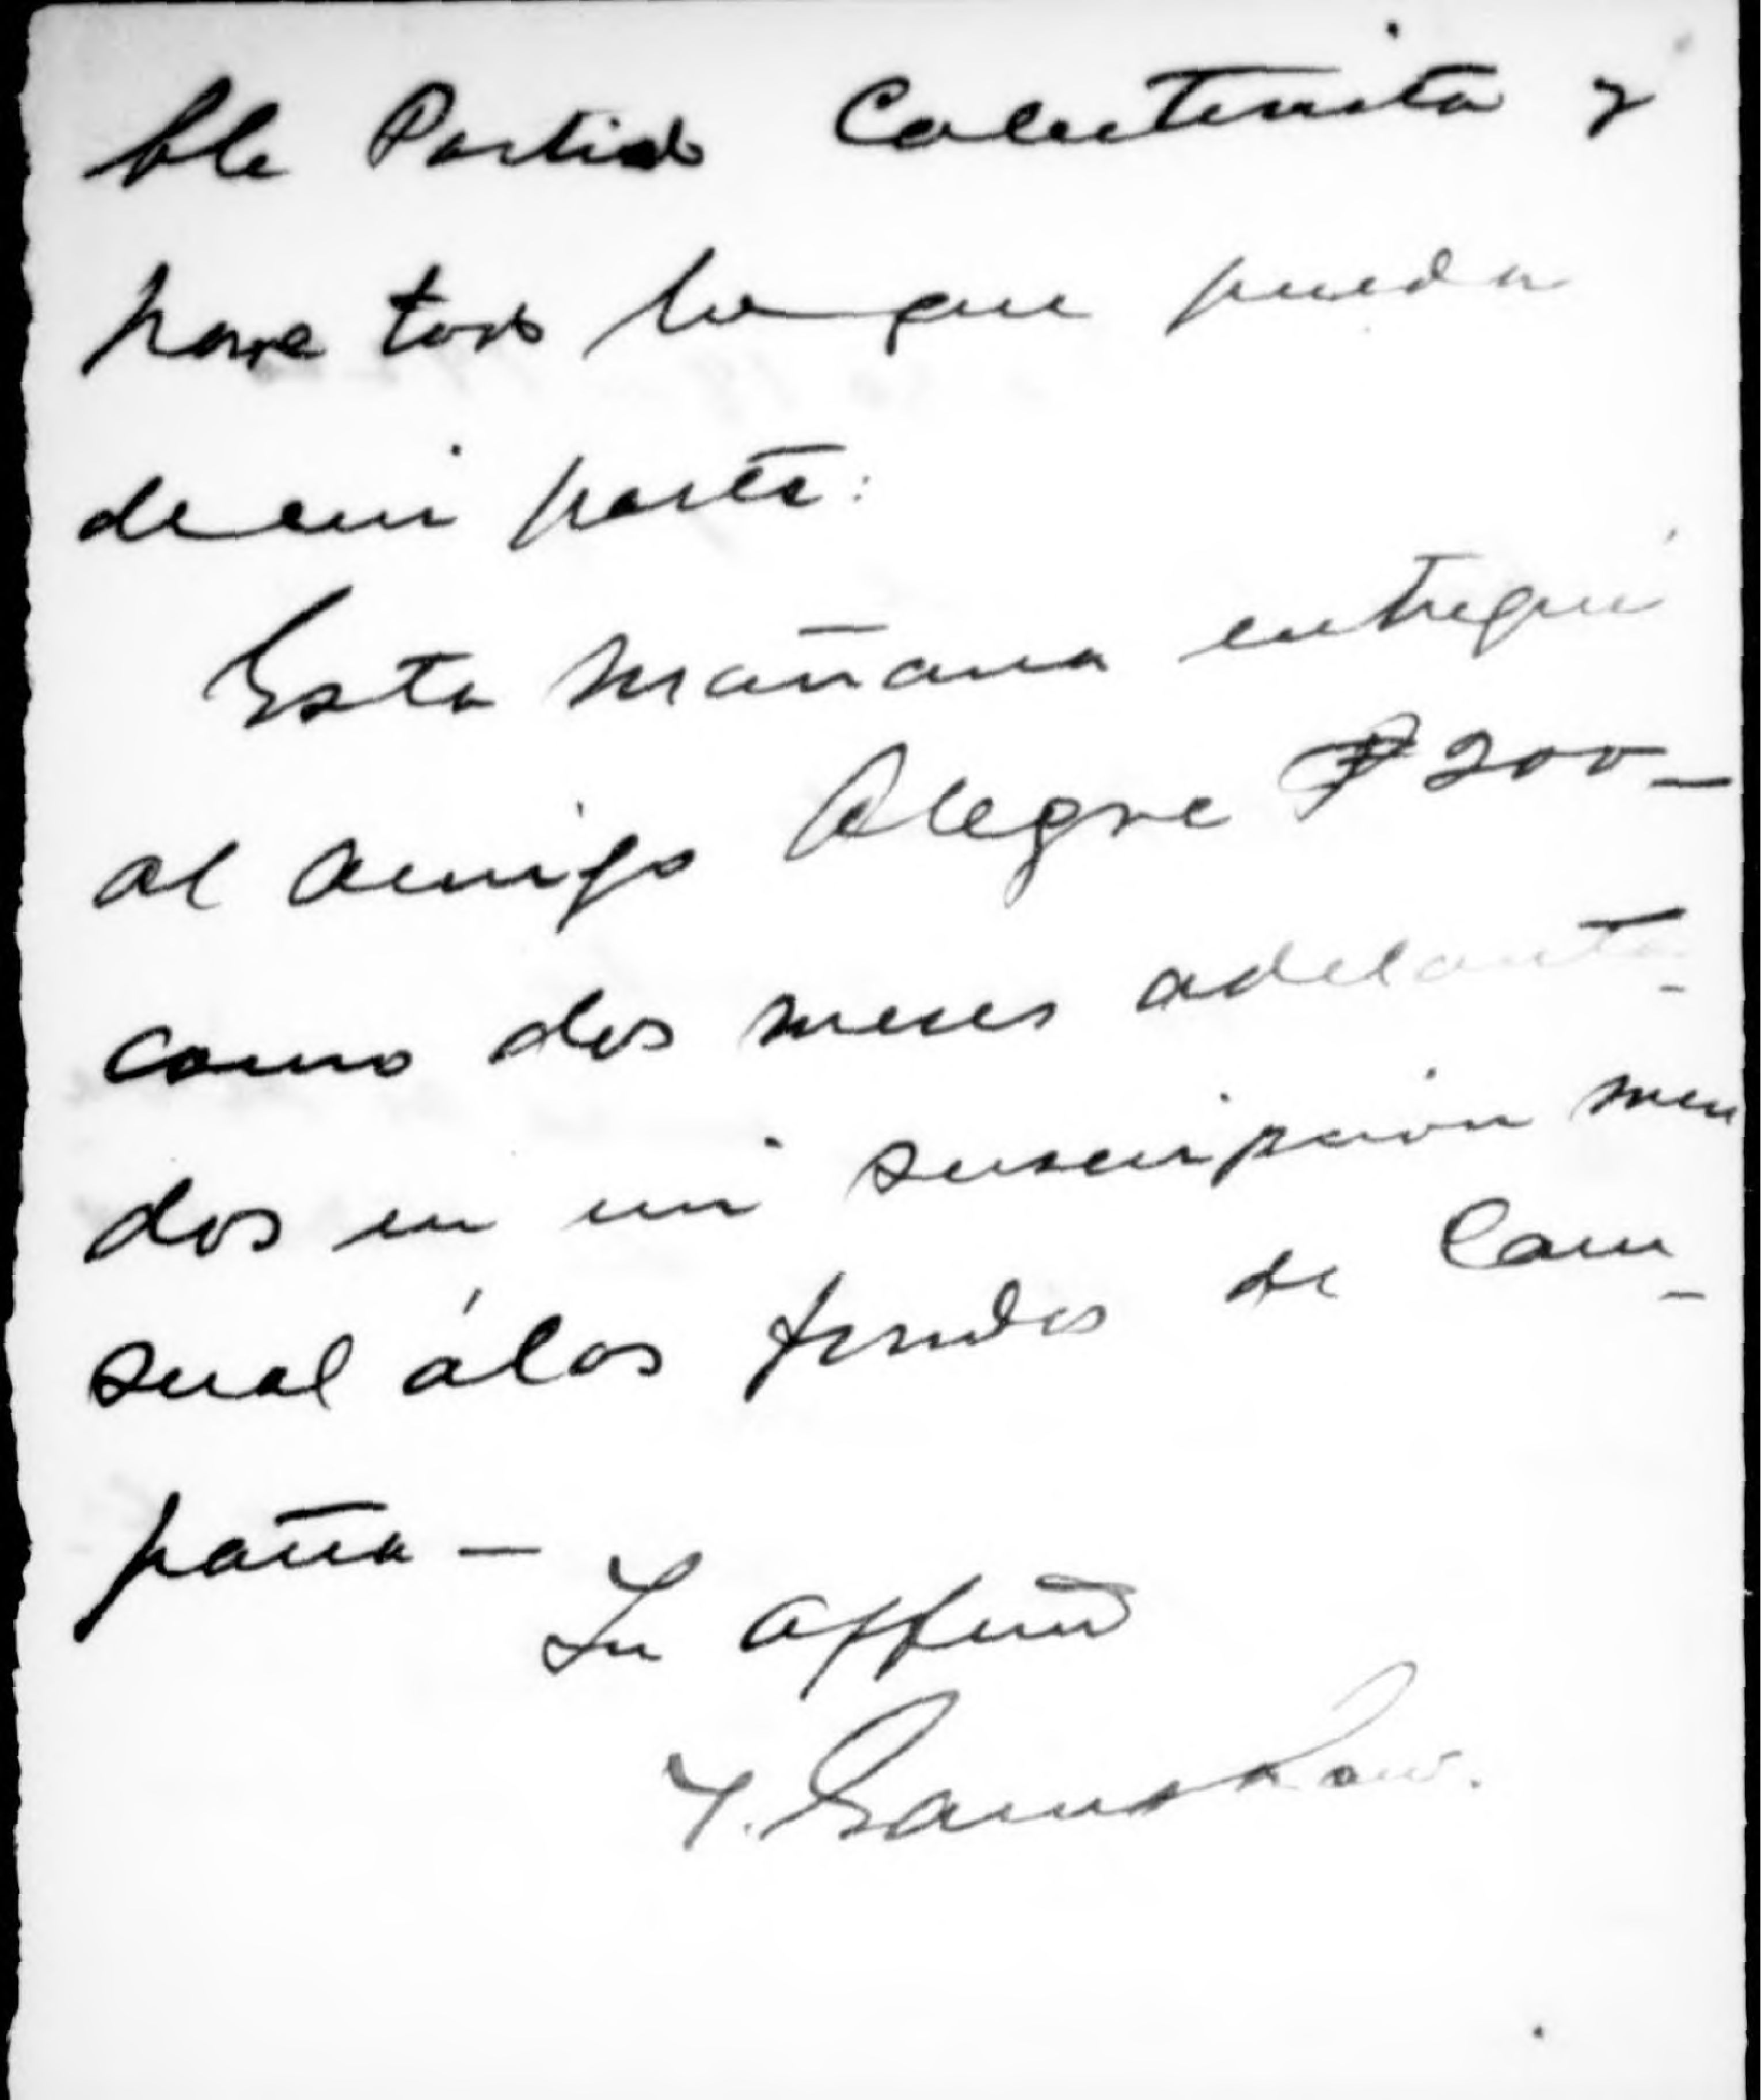 ble Partido Colectivista y
haré todo lo que pueda
de mi parte:
Esta mañana entregué
al amigo Alegre ₱200—
como dos meses adelanta-
dos en mi suscripción men
sual á los fondos de Cam-
paña—
Su affmo
T. Earnshaw.